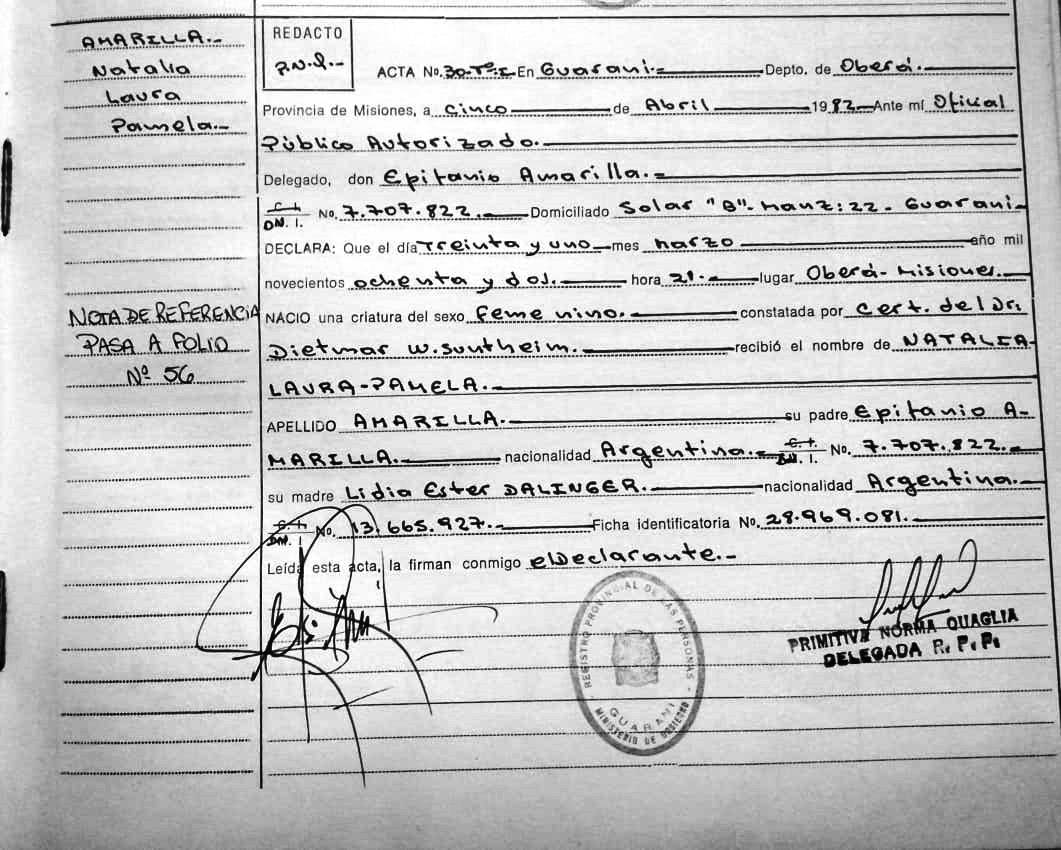 AMARILLA.-
Natalia
Laura
Pamela.-
NOTA DE REFERENCIA
PASA A FOLIO
Nº 56
REDACTO
P.N.Q.-
ACTA No. 30-Tº:I- En Guaraní.- Depto. de Oberá.
Provincia de Misiones, a cinco de Abril 1982 Ante mí Oficial
Público Autorizado.-
Delegado, don Epifanio Amarilla.-
C. I. DN. I. No. 7.707.822.- Domiciliado Solar "B"- Manz: 22- Guaraní-
DECLARA: Que el día Treinta y uno mes marzo año mil
novecientos ochenta y dos.- hora 21.- lugar Oberá- Misiones.
NACIO una criatura del sexo femenino.- constatada por Cert. del Dr.
Dietmar W. Suntheim.- recibió el nombre de NATALIA-
LAURA-PAMELA.-
APELLIDO AMARILLA.- su padre Epifanio A-
MARILLA.- nacionalidad Argentina.- C. I. DN. I. No. 7.707.822.-
su madre Lidia Ester DALINGER.- nacionalidad Argentina.-
C. I. DN. I. No. 13.665.927.- Ficha identificatoria No. 28.969.081.-
Leída esta acta, la firman conmigo el Declarante.-
REGISTRO PROVINCIAL DE LAS PERSONAS
GUARANI
MINISTERIO DE GOBIERNO
PRIMITIVA NORMA QUAGLIA
DELEGADA R. P. P.